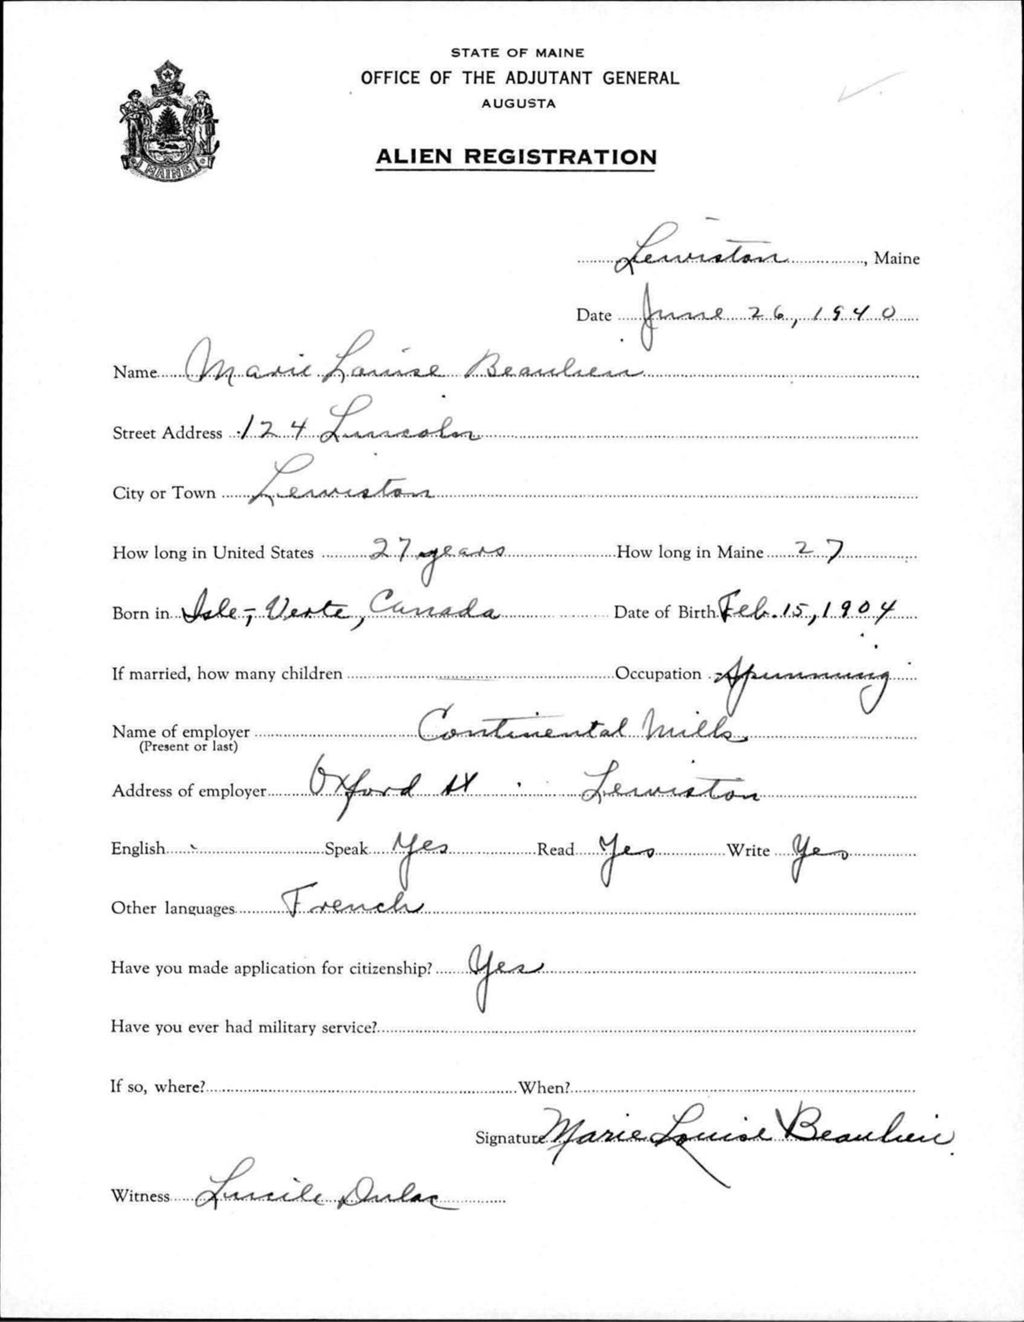 STATE OF MAINE
OFFICE OF THE ADJUTANT GENERAL
AUGUSTA
MAINE
ALIEN REGISTRATION
Lewiston, Maine
Date June 26, 1940
Name Marie Louise Beaulieu
Street Address 124 Lincoln
City or Town Lewiston
How long in United States 27 years How long in Maine 27
Born in Isle-Verte, Canada Date of Birth Feb. 15, 1904
If married, how many children Occupation Spinning
Name of employer Continental Mills
(Present or last)
Address of employer Oxford St Lewiston
English Speak Yes Read Yes Write Yes
Other languages French
Have you made application for citizenship? Yes
Have you ever had military service?
If so, where? When?
Signature Marie Louise Beaulieu
Witness Lucile Dulac